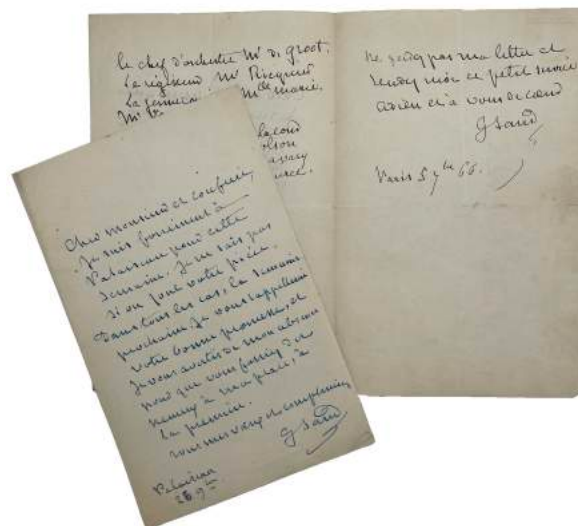 le chef d'orchestre Mr de Groot.
Le régisseur Mr
La Mlle Marie.
Mr
ne perdez pas ma lettre et
rendez moi ce petit service
adieu et à vous de cœur
G Sand
Paris 5 7bre 66.
Cher monsieur et confrère,
Je suis forcément à
Palaiseau pour cette
semaine. Je ne sais pas
si on joue votre pièce.
Dans tous les cas, la semaine
prochaine je vous rappellerai
votre bonne promesse, et
je vous avertis de mon absence
pour que vous fassiez des
à ma place, à
la première.
tous mes vœux et complimens
G Sand
Palaiseau
26 9bre